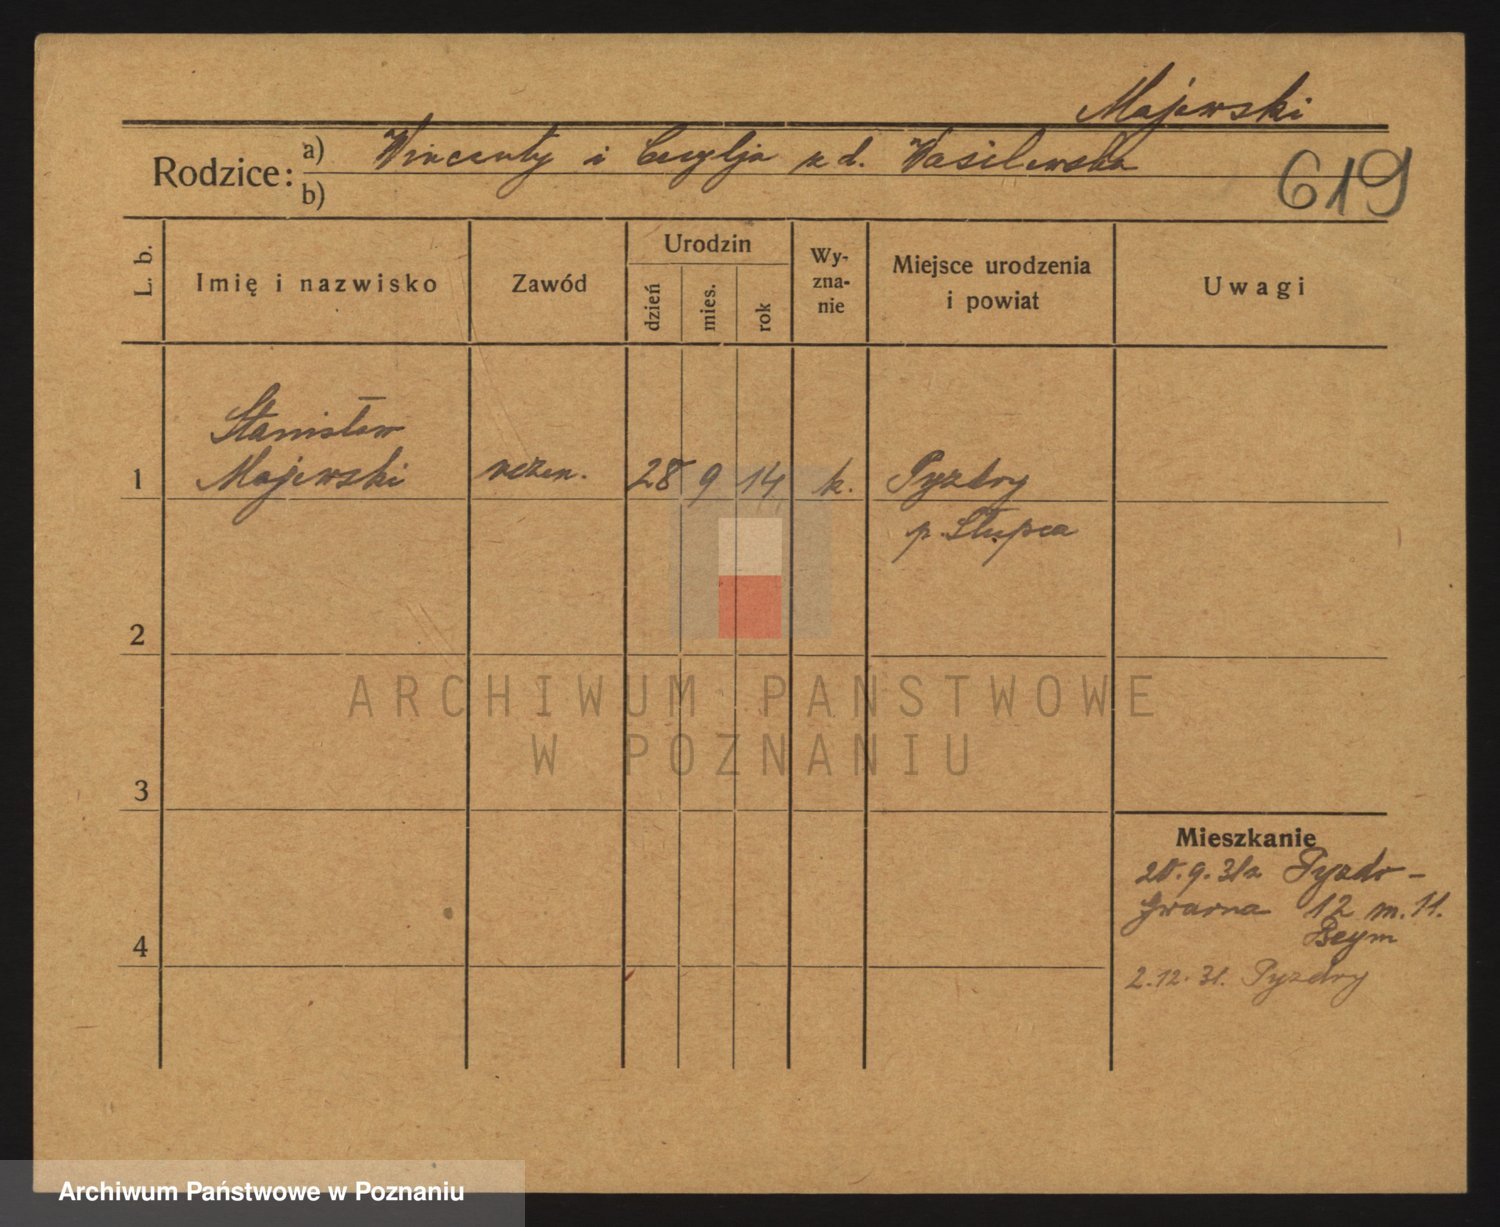 Majewski
Rodzice: a) Wincenty i Cecylja z d. Wasilewska
b)
619
L. b.
Imię i nazwisko
Zawód
Urodzin
dzień
mies.
rok
Wy-
zna-
nie
Miejsce urodzenia
i powiat
Uwagi
Stanisław
1 Majewski uczen. 28 9 14 k. Pyzdry
p. Słupca
2
ARCHIWUM PAŃSTWOWE
W POZNANIU
3
Mieszkanie
20.9.31 z Pyzdr-
Gwarna 12 m. 11.
Beym
4
2.12.31. Pyzdry
Archiwum Państwowe w Poznaniu